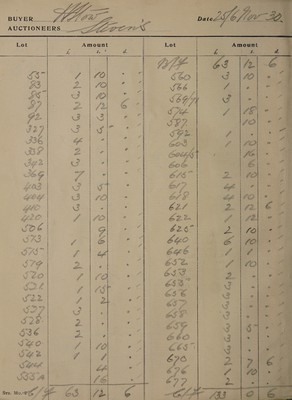 BUYER
Date 25/6 Nov - 30.
AUCTIONEERS Stevens
Lot Amount Lot Amount
£ s. d. £ s. d.
B/F 63 12 6
55 1 10 560 3 10
83 2 10 566 1
85 3 10 569/71 3
87 2 12 6 574 1 18
92 3 3 587 10
327 3 5 592 1
336 4 603 1 10
338 2 604/5
342 3 606 6
369 7 615 2 10
403 3 5 617 4
404 3 10 618 4 10
410 3 621 2 12 6
420 1 10 622 1 12
506 9 625 2 10
573 1 6 640 6 10
575 1 4 646 1 1
579 2 652 1 10
520 1 10 653 2
521 1 15 655 3
522 1 2 656 3
527 3 657 3
528 2 658 3
536 2 659 3 5
540 1 10 660 3
542 1 1 665 3
544 4 670 2 7 6
555A 16 676 1 10
677 2
C/F 63 12 6 C/F 133 0 6